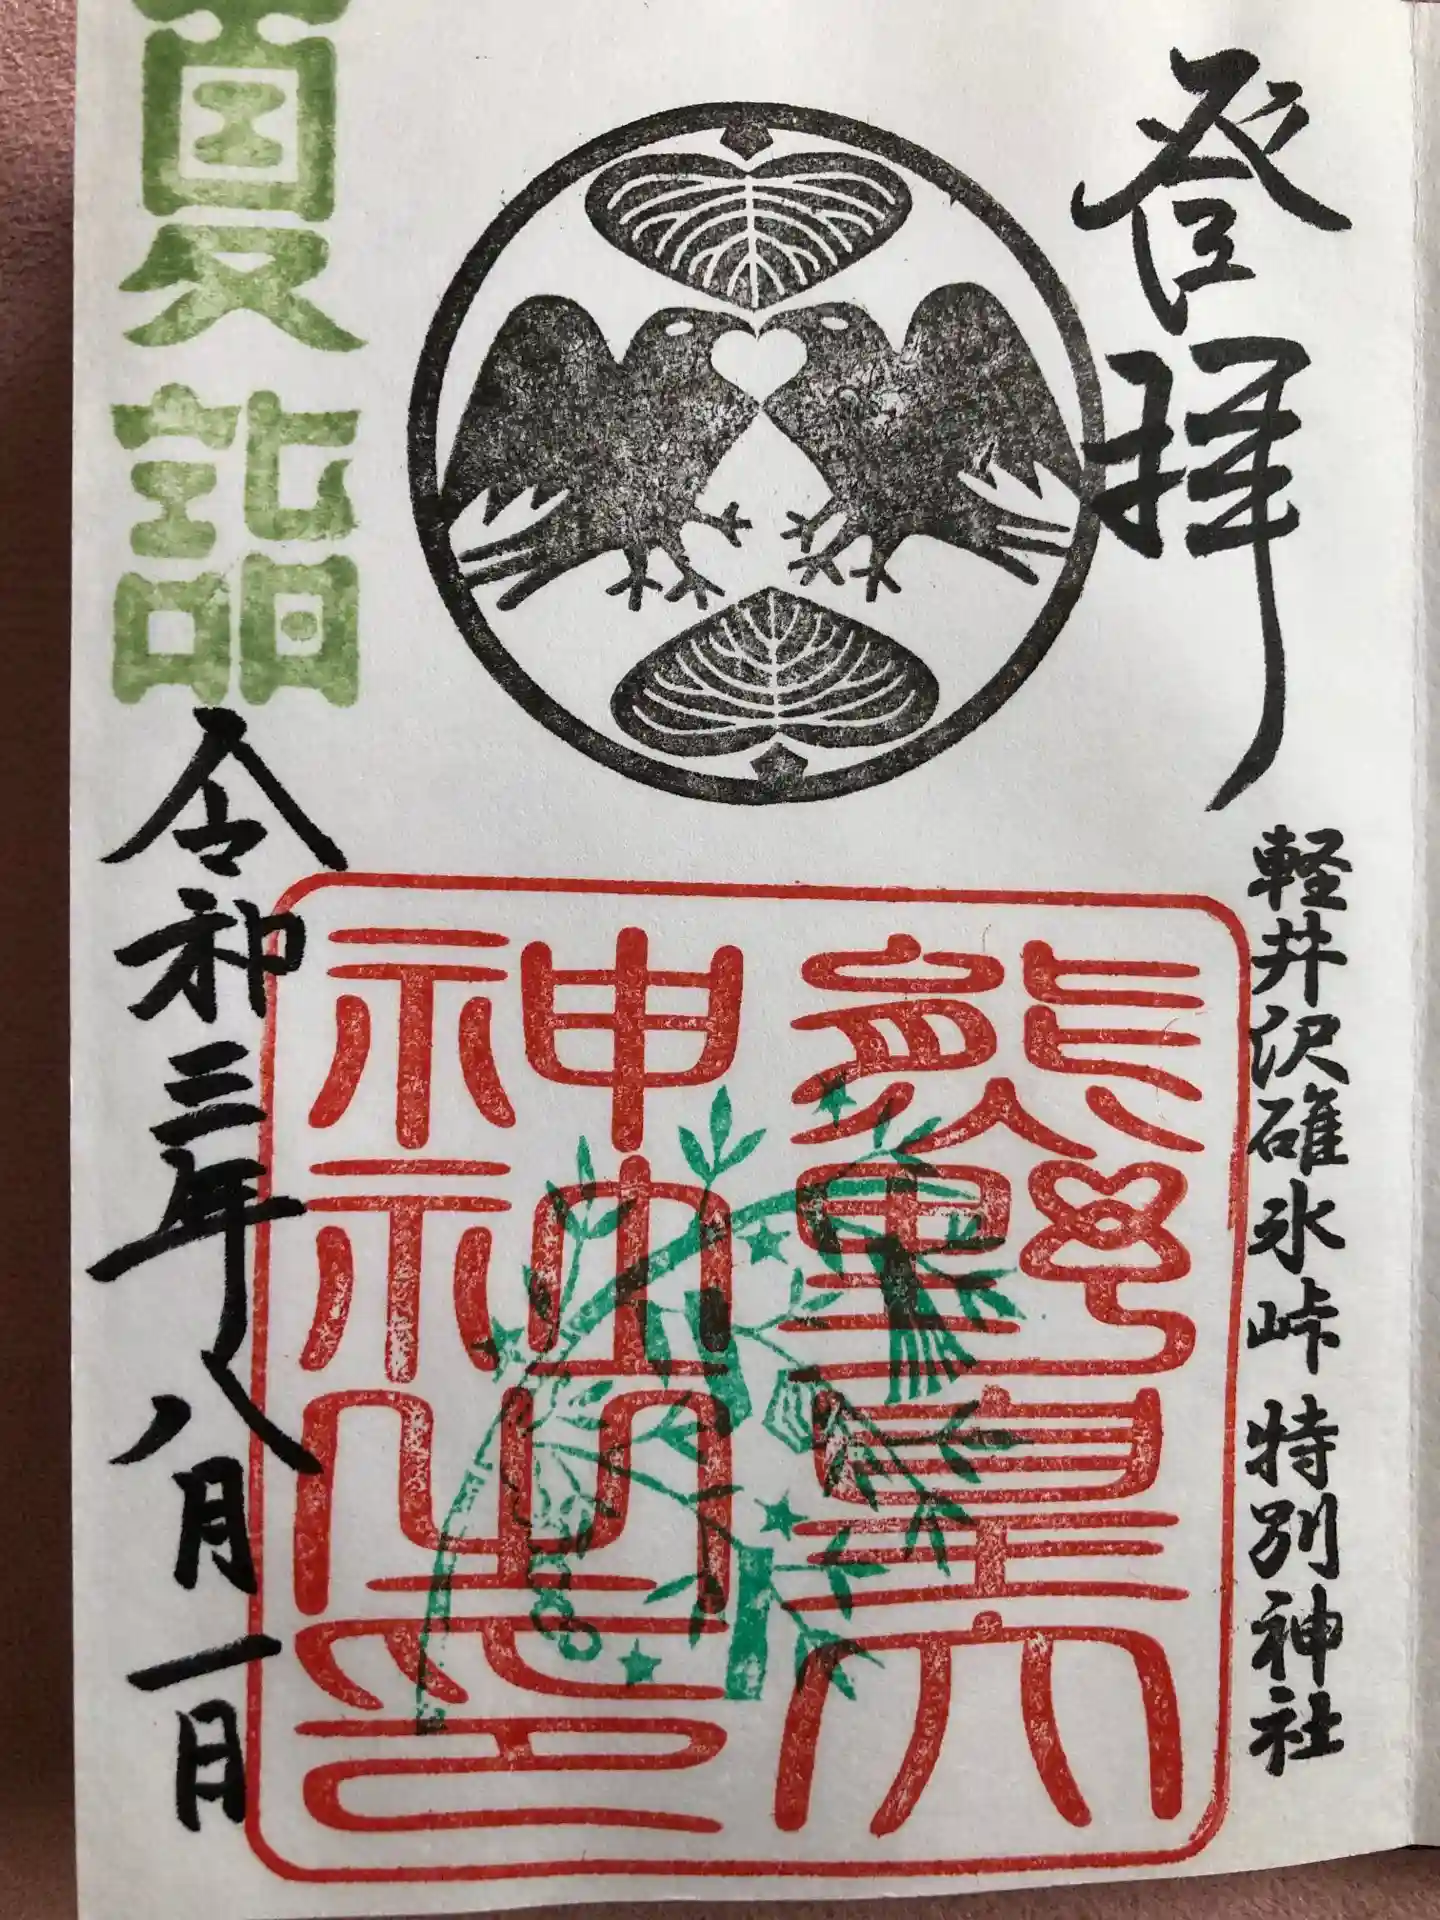 登拝
軽井沢碓氷峠 特別神社
熊野皇大
神社之印
夏詣
令和三年八月一日